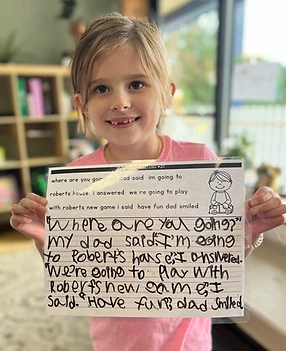 where are you going dad said im going to
roberts house i answered we re going to play
with roberts new game i said have fun dad smiled
"Where are you going?"
my dad said."I'm going
to Robert's house,"I answered.
"We're going to Play with
Robert's new game,"I
said."Have fun,"dad smiled.